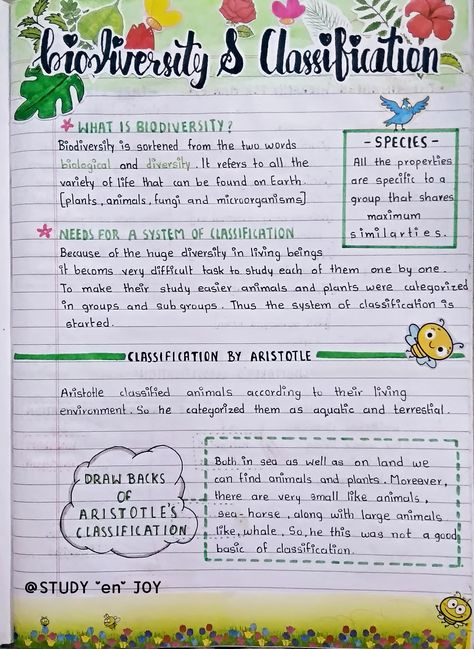 biodiversity & Classification
* WHAT IS BIODIVERSITY?
Biodiversity is sortened from the two words
biological and diversity. It refers to all the
variety of life that can be found on Earth
[plants, animals, fungi and microorganisms]
- SPECIES -
All the properties
are specific to a
group that shares
maximum
similarties.
* NEEDS FOR A SYSTEM OF CLASSIFICATION
Because of the huge diversity in living beings
it becoms very difficult task to study each of them one by one.
To make their study easier animals and plants were categorized
in groups and sub groups. Thus the system of classification is
started.
CLASSIFICATION BY ARISTOTLE
Aristotle classified animals according to their living
environment. So he categorized them as aquatic and terrestial.
DRAW BACKS
OF
ARISTOTLE'S
CLASSIFICATION
Both in sea as well as on land we
can find animals and plants. Moreaver,
there are very small like animals,
sea-horse, along with large animals
like, whale. So, he this was not a good
basic of classification.
@STUDY "en" JOY